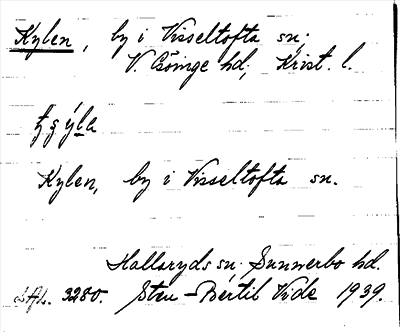 Kylen, by i Visseltofta sn;
V. Göinge hd; Krist. l.
Kylen, by i Visseltofta sn.
Hallaryds sn. Sunnerbo hd.
LAL. 3280. Sten-Bertil Vide 1939.